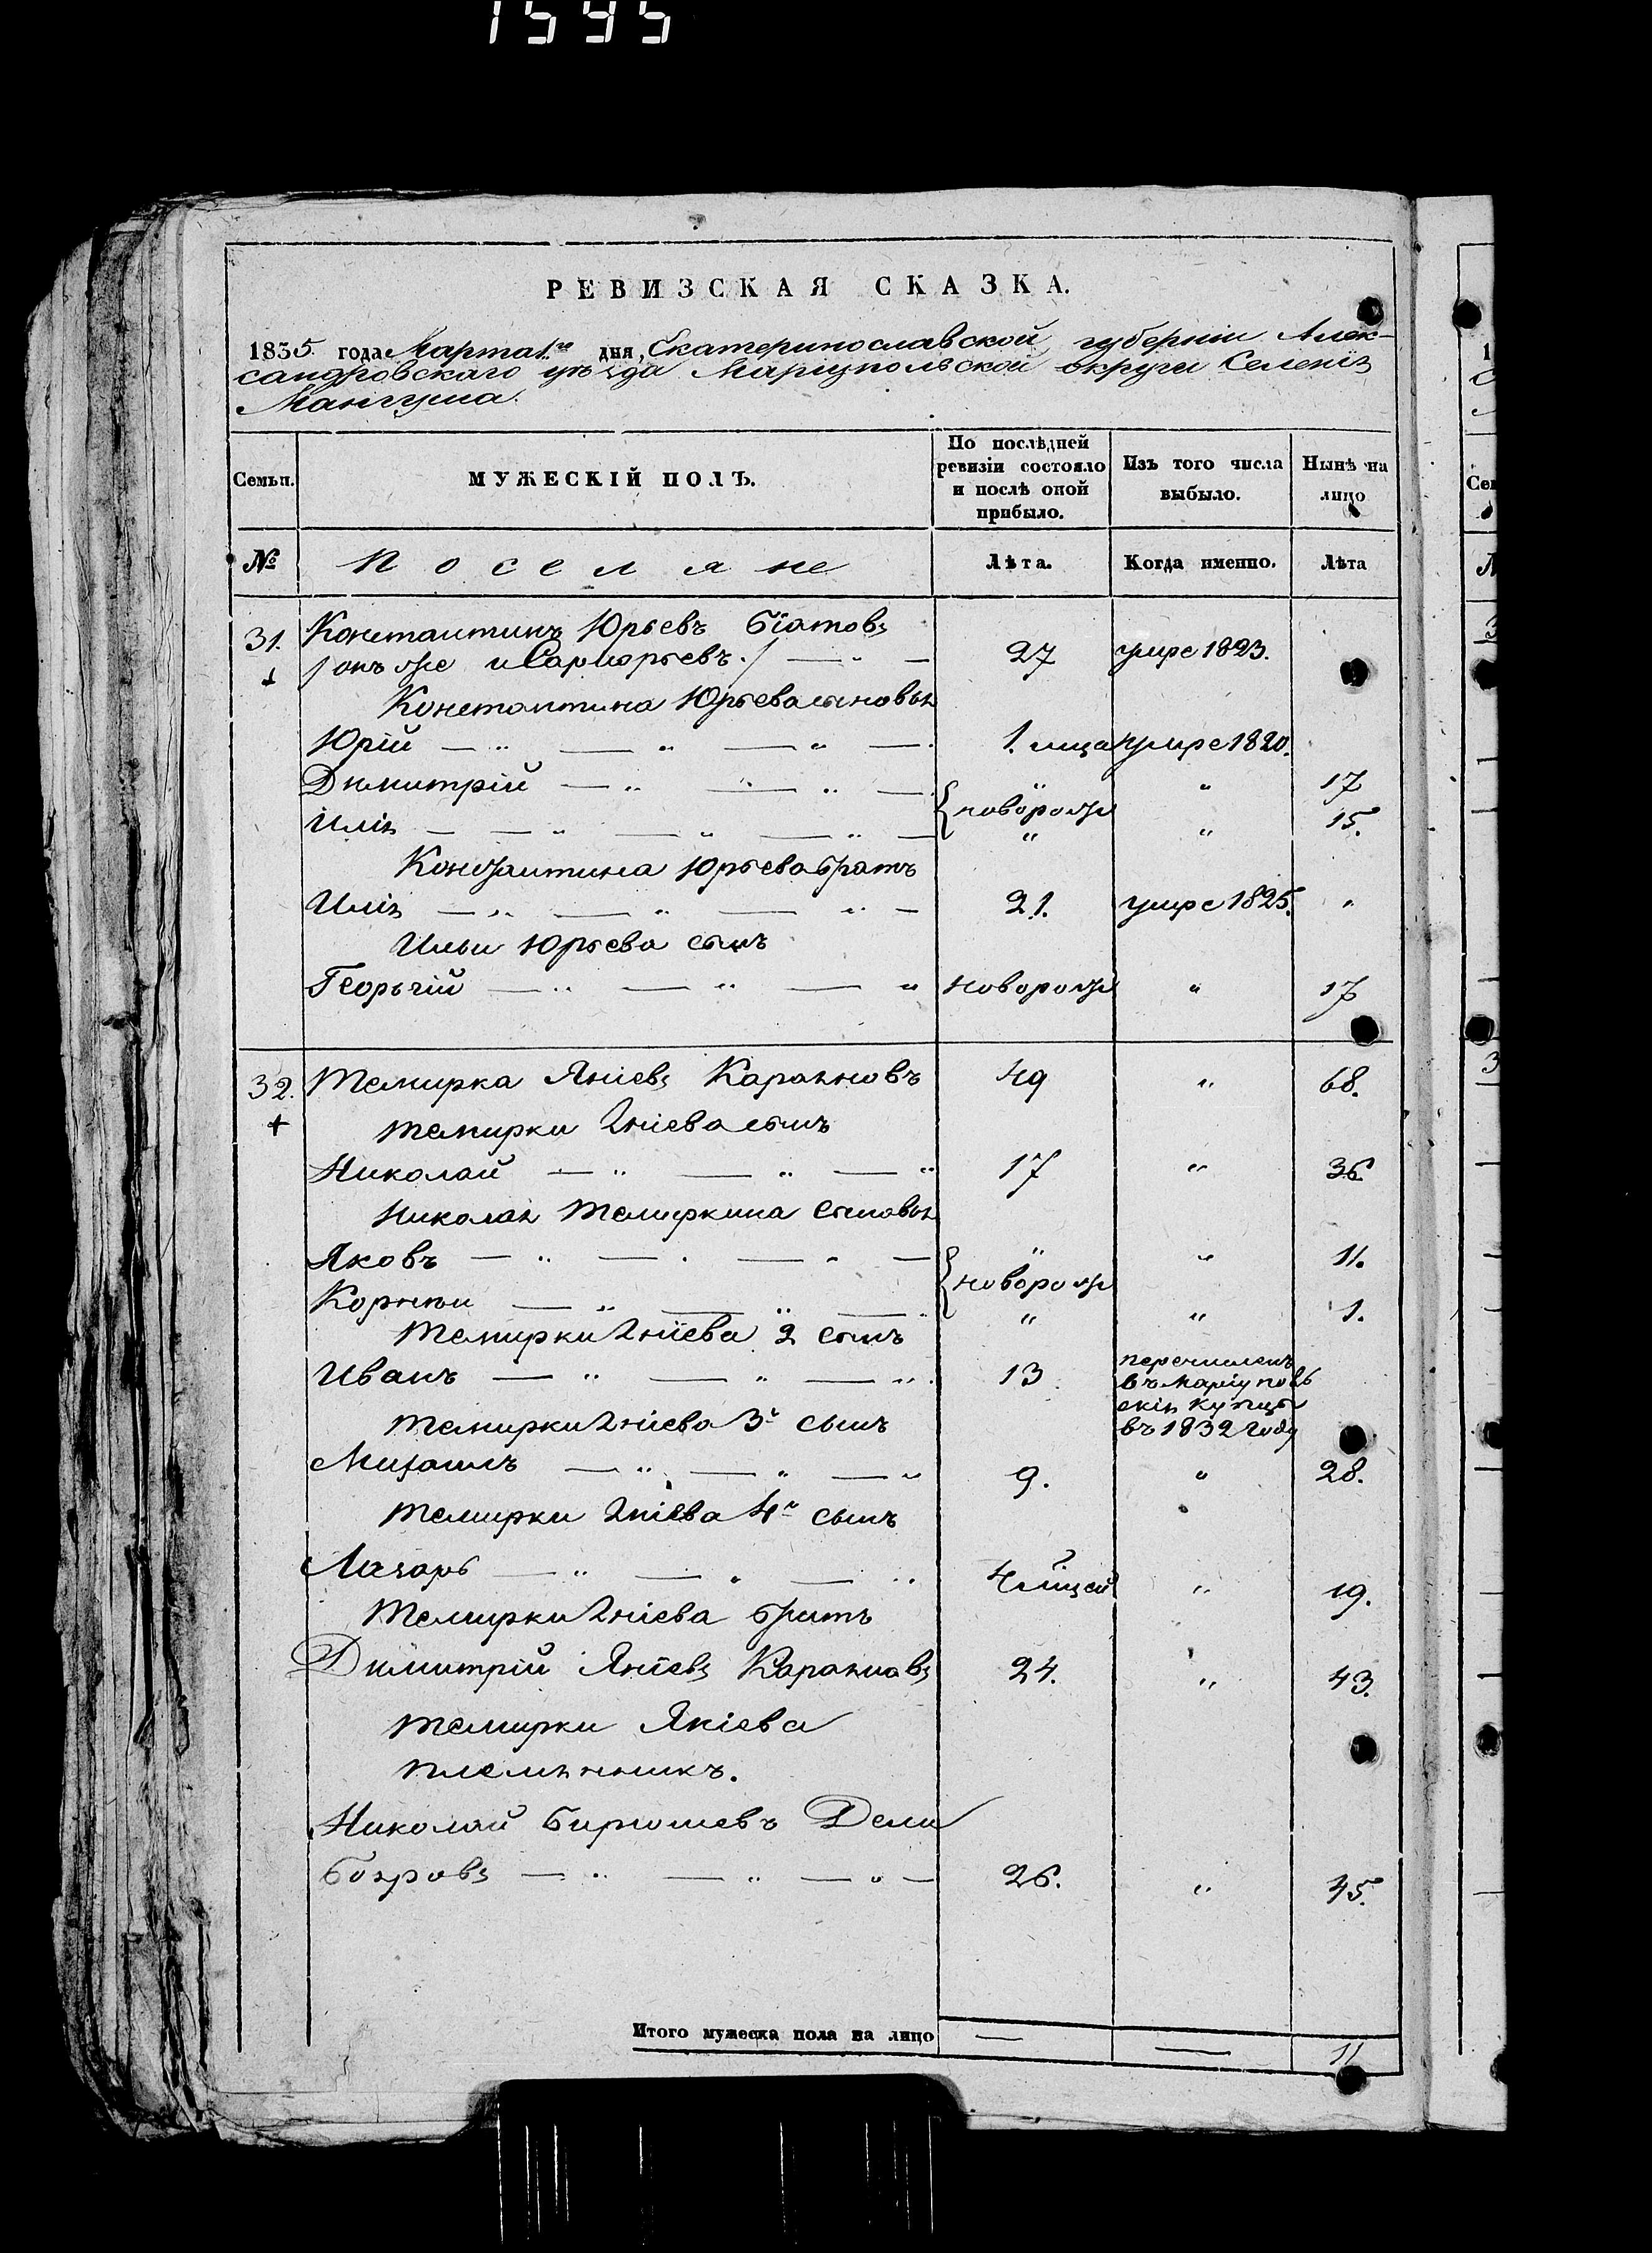 1595
РЕВИЗСКАЯ СКАЗКА.
1835 года Марта 1го дня, Екатеринославской губерніи Алек-
сандровскаго уѣзда Маріупольской округи Селенія
Мангуша.
Семьи.
МУЖЕСКІЙ ПОЛЪ.
По послѣдней ревизіи состояло и послѣ оной прибыло.
Изъ того числа выбыло.
Нынѣ на лицо
№ Поселяне Лѣта. Когда именно. Лѣта
31. Константинъ Юрьевъ Біатовъ
/ онъ же и / — " — 27 умре 1823.
Константина Юрьева сыновья
Юрій — " — " — " — 1. мца умре 1820.
Димитрій — " — " — " " 17
{ новорож
Илія — — " — " — " — " " 15.
Константина Юрьева братъ
Илія — " — " — " — 21. умре 1825. "
Ильи Юрьева сынъ
Георгій — " — " — " новорож " 17
32. Темирка Яніевъ Караяновъ 49 " 68.
Темирки Яніева сынъ
Николай — " — " — " 17 " 36
Николая Темиркина сыновья
Яковъ — " — " — " — " " 11.
{ новорож
Корнѣи — " — " — " " 1.
Темирки Яніева 2 сынъ
Иванъ — " — " — " 13. перечисленъ
въ Маріуполь
скія купцы
въ 1832 году
Темирки Яніева 3й сынъ
Михаилъ — " — " — " 9. " 28.
Темирки Яніева 4й сынъ
Лазарь — " — " — " 4 мцей " 19.
Темирки Яніева братъ
Димитрій Яніевъ Караяновъ 24. " 43.
Темирки Яніева
племянникъ.
Николай Бирюшевъ Дели
Бояровъ — " — " — " — 26. " 45.
Итого мужеска пола на лицо — — 11